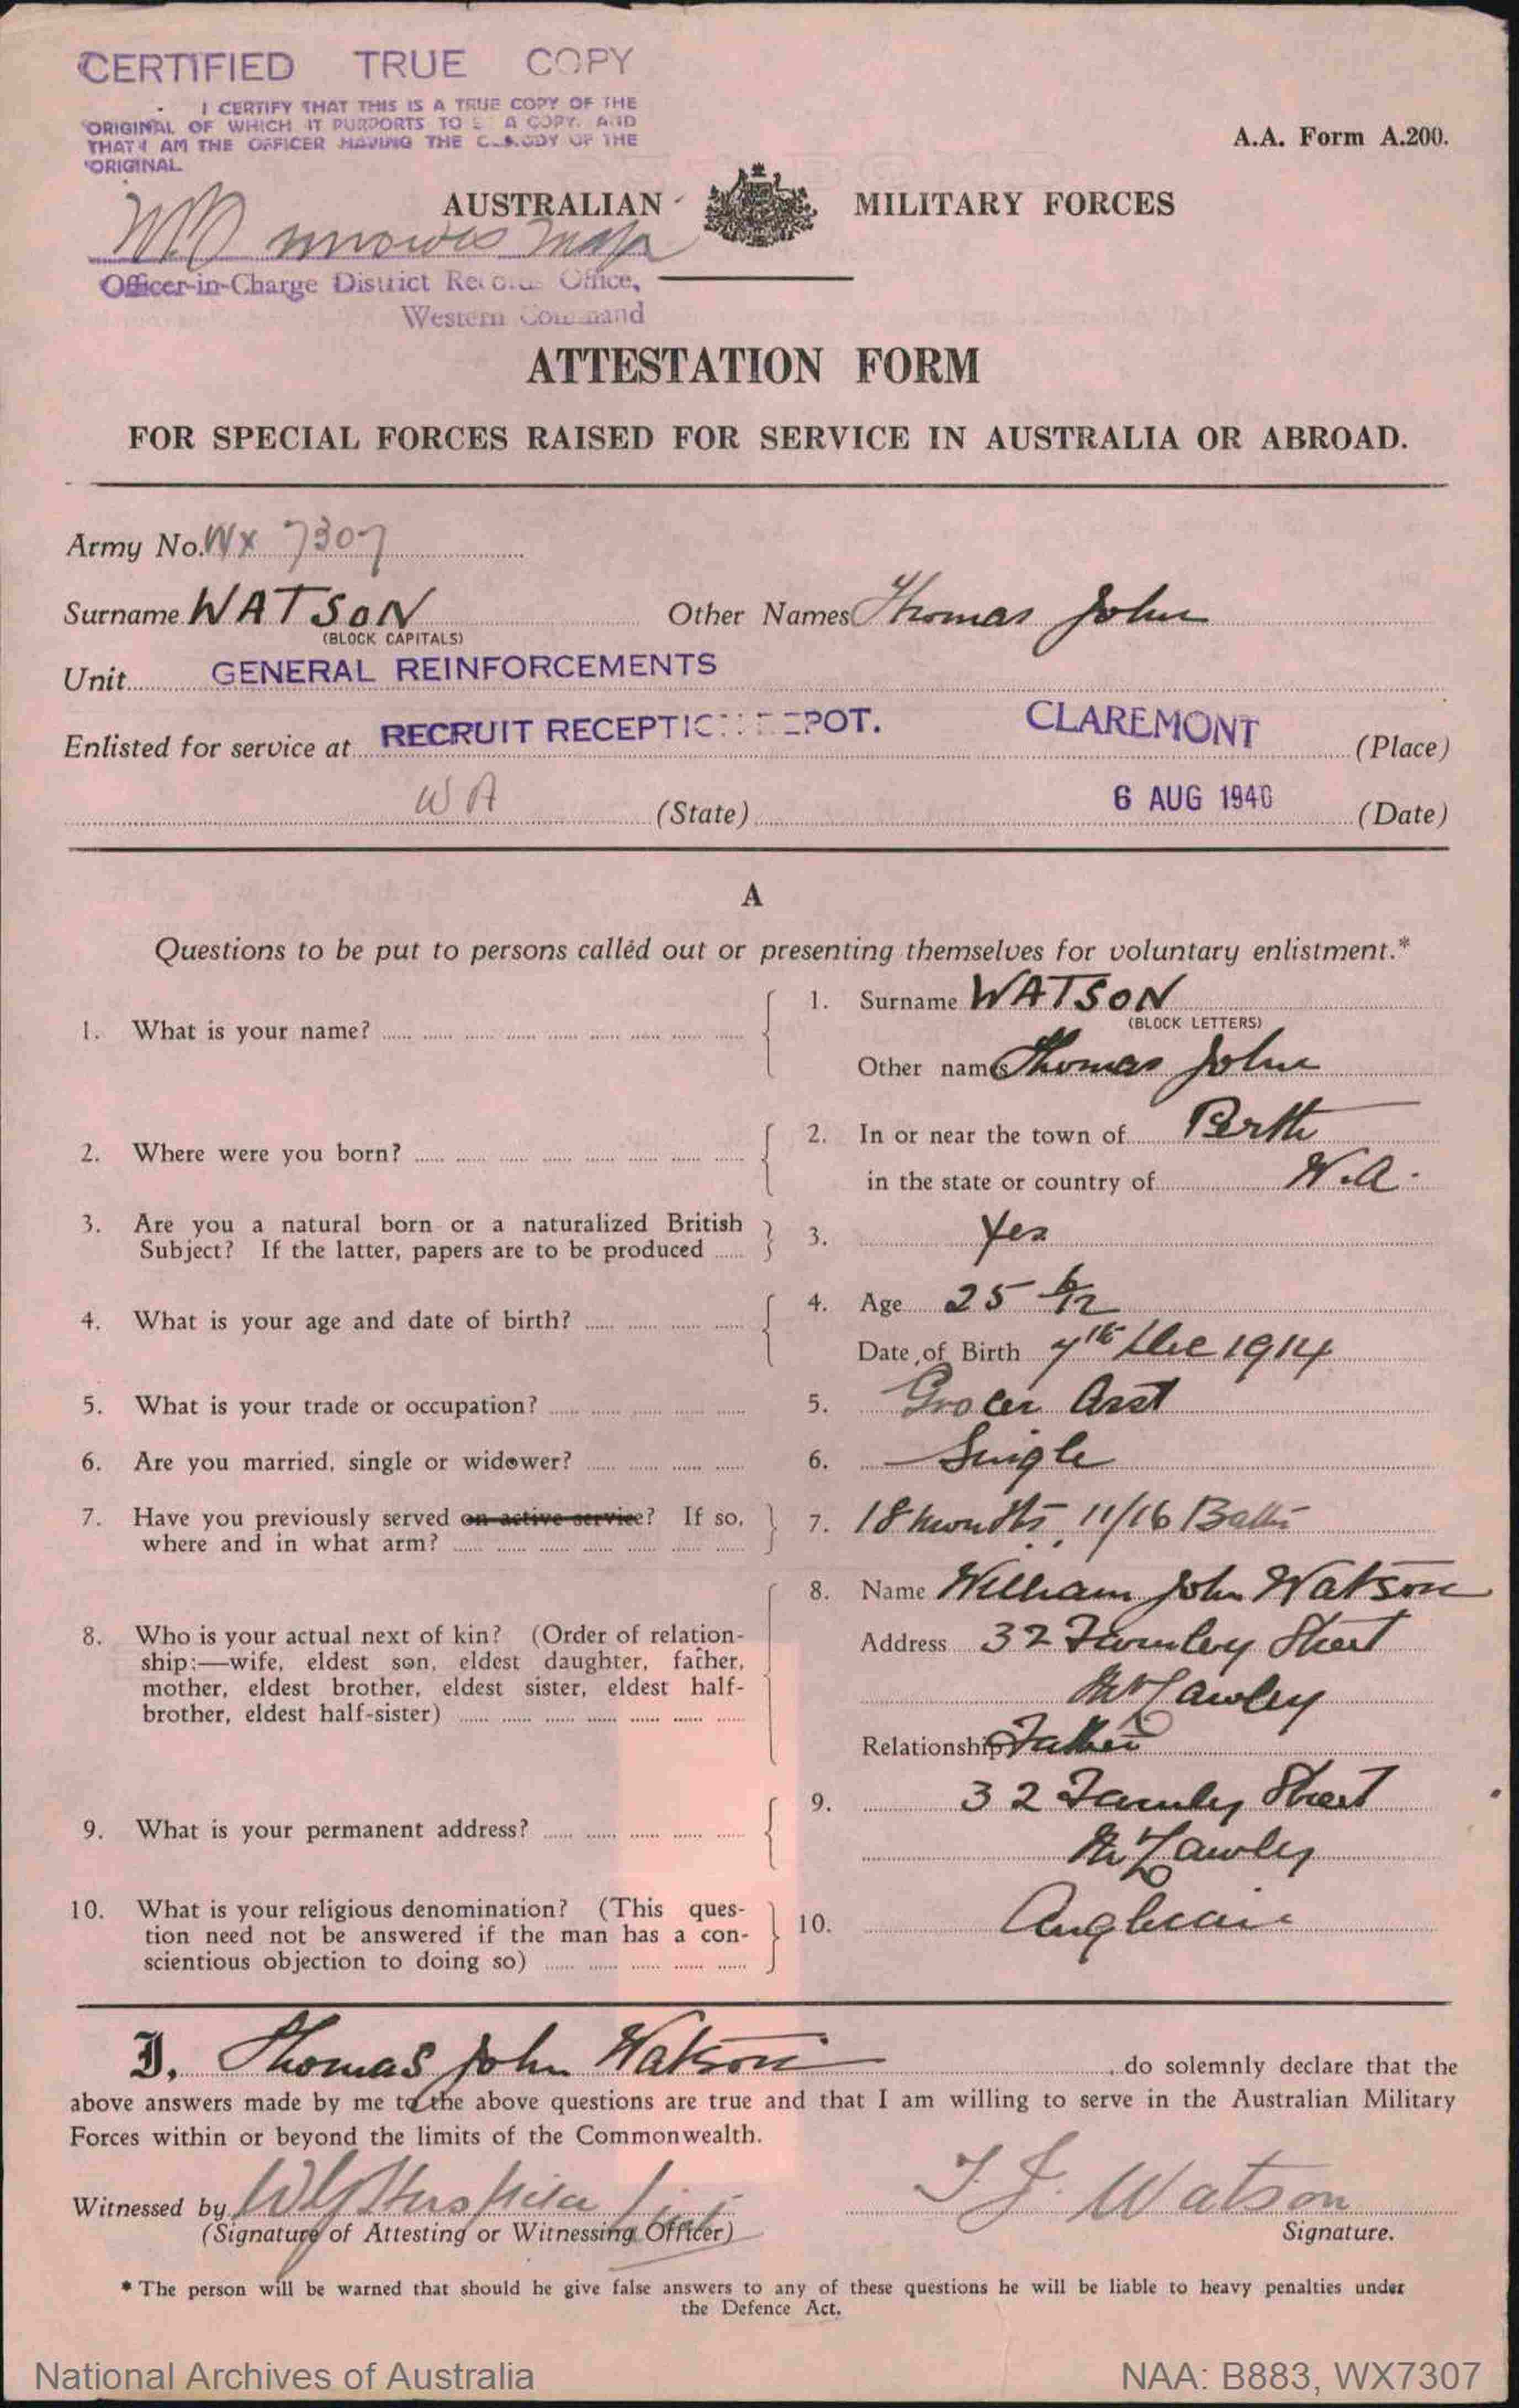 CERTIFIED TRUE COPY
I CERTIFY THAT THIS IS A TRUE COPY OF THE
ORIGINAL OF WHICH IT PURPORTS TO A COPY. AND
THAT I AM THE OFFICER HAVING THE C..ODY OF THE
ORIGINAL
A.A. Form A.200.
AUSTRALIAN MILITARY FORCES
Officer-in-Charge District Records Office,
Western Command
ATTESTATION FORM
FOR SPECIAL FORCES RAISED FOR SERVICE IN AUSTRALIA OR ABROAD.
Army No. WX 7307
Surname WATSON Other Names Thomas John
(BLOCK CAPITALS)
Unit GENERAL REINFORCEMENTS
Enlisted for service at RECRUIT RECEPTION DEPOT. CLAREMONT (Place)
WA (State) 6 AUG 1940 (Date)
A
Questions to be put to persons called out or presenting themselves for voluntary enlistment.*
1. What is your name? 1. Surname WATSON
(BLOCK LETTERS)
Other names Thomas John
2. Where were you born? 2. In or near the town of Perth
in the state or country of W.A.
3. Are you a natural born or a naturalized British
Subject? If the latter, papers are to be produced 3. Yes
4. What is your age and date of birth? 4. Age 25 6/12
Date of Birth 7th Dec 1914
5. What is your trade or occupation? 5. Grocer Asst
6. Are you married, single or widower? 6. Single
7. Have you previously served on active service? If so,
where and in what arm? 7. 18 months 11/16 Battn
8. Who is your actual next of kin? (Order of relation-
ship:—wife, eldest son, eldest daughter, father,
mother, eldest brother, eldest sister, eldest half-
brother, eldest half-sister)
8. Name William John Watson
Address 32 Street
Mt Lawley
Relationship Father
9. What is your permanent address? 9. 32 Street
Mt Lawley
10. What is your religious denomination? (This ques-
tion need not be answered if the man has a con-
scientious objection to doing so) 10. Anglican
I, Thomas John Watson, do solemnly declare that the
above answers made by me to the above questions are true and that I am willing to serve in the Australian Military
Forces within or beyond the limits of the Commonwealth.
Witnessed by T. J. Watson
(Signature of Attesting or Witnessing Officer) Signature.
* The person will be warned that should he give false answers to any of these questions he will be liable to heavy penalties under
the Defence Act.
National Archives of Australia NAA: B883, WX7307